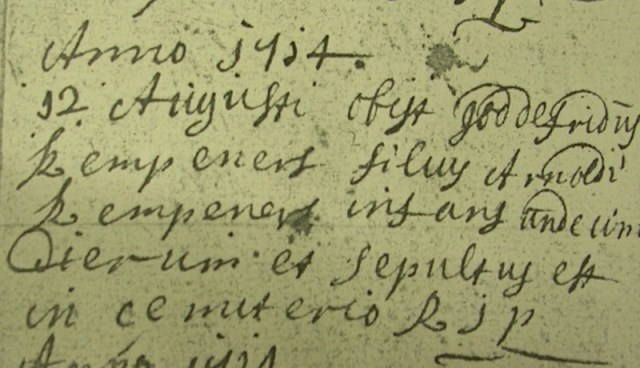 Anno 1714.
12 Augusti obijt goddefridus
Kempeners filius Arnoldi
Kempeners infans undecim
dierum et sepultus est
in cemiterio R I P
Anno 1714